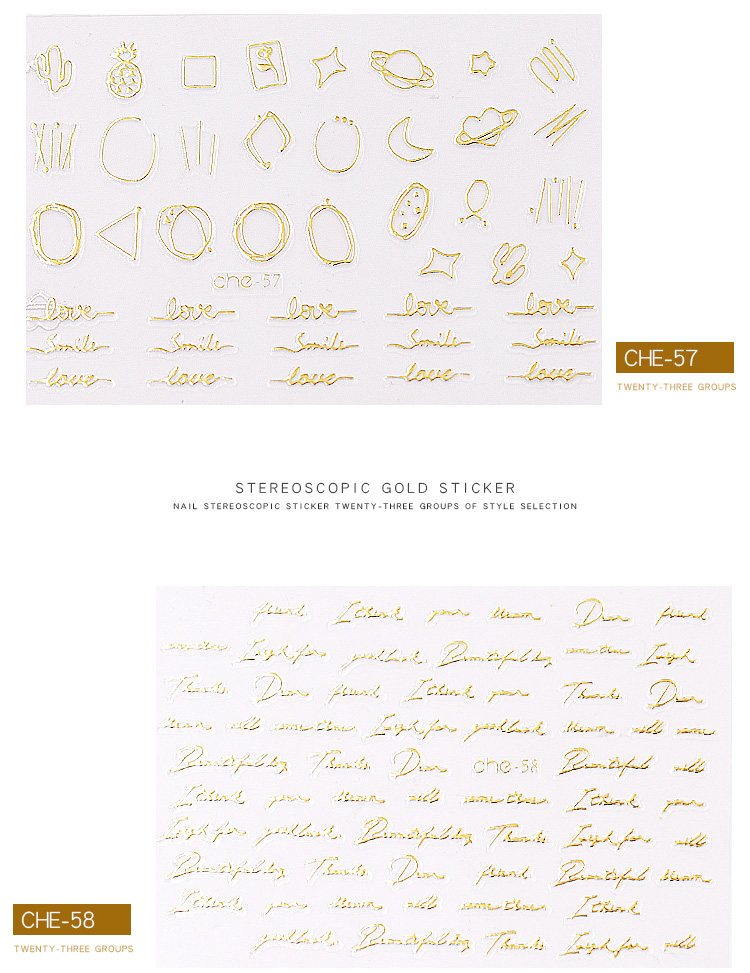 che-57
love love love love love
Smile Smile Smile Smile Smile
love love love love love
CHE-57
TWENTY-THREE GROUPS
STEREOSCOPIC GOLD STICKER
NAIL STEREOSCOPIC STICKER TWENTY-THREE GROUPS OF STYLE SELECTION
friend I think your Dear friend
Laugh for good luck Beautiful day Laugh
Thanks Dear friend I think your Thanks Dear
Laugh for good luck
Beautiful day Thanks Dear che-58 Beautiful
I think your I think your
Laugh for good luck Beautiful day Thanks Laugh for
Beautiful day Thanks Dear friend Beautiful
I think your I think
good luck Beautiful day Thanks Laugh for
CHE-58
TWENTY-THREE GROUPS